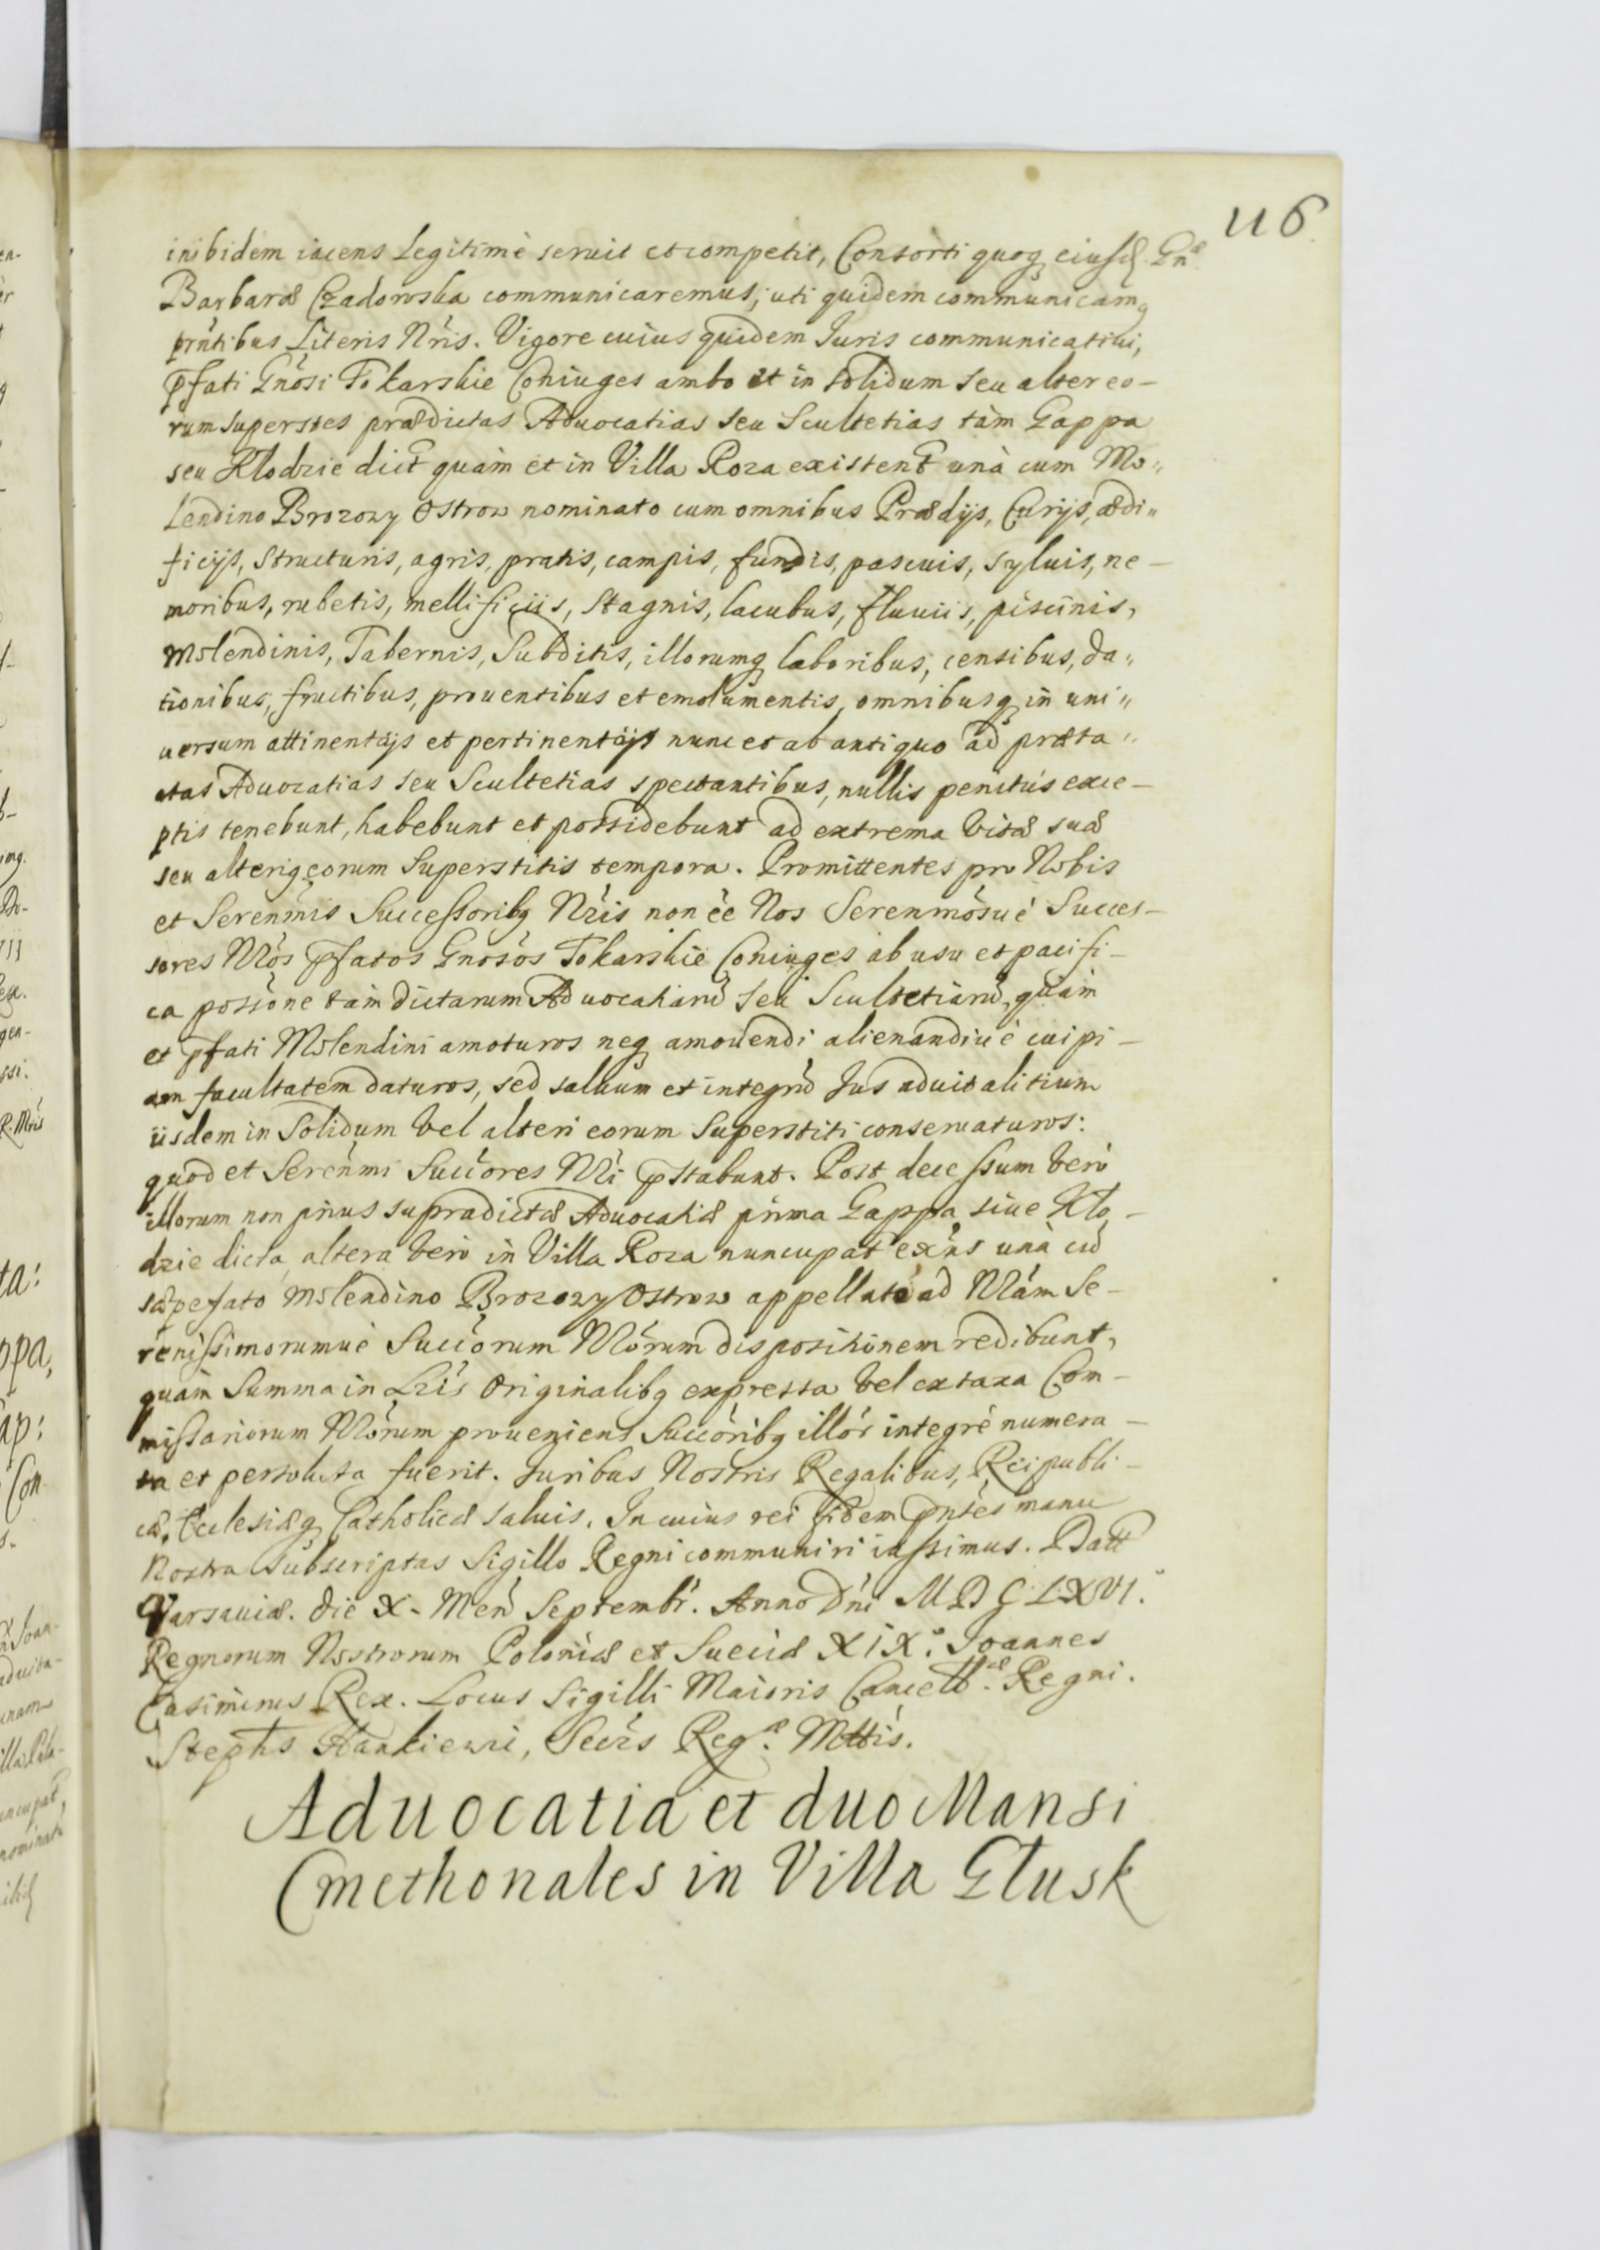 116
inibidem iacens Legitimè seruit et competit, Consorti quoq eiusd Gnæ
Barbaræ Czadorska communicaremus, uti quidem communicamq
prńtibus Literis Nris. Vigore cuius quidem Iuris communicatiui,
pfati Gnosi Tokarskie Coniuges ambo et in solidum seu alter eo-
rum superstes prædictas Aduocatias seu Scultetias tàm Gappa
seu Klodzie dict quàm et in Villa Roza existent unà cum Mo„
lendino Brozowy Ostrow nominato cum omnibus Prædijs, Curijs, ædi„
ficijs, structuris, agris, pratis, campis, fundis, pascuis, syluis, ne-
moribus, rubetis, mellificiis, stagnis, lacubus, fluuiis, piscinis,
Molendinis, Tabernis, Subditis, illorumq laboribus, censibus, da„
tionibus, fructibus, prouentibus et emolumentis, omnibusq in uni„
uersum attinentijs et pertinentijs nunc et ab antiquo ad præta„
ctas Aduocatias seu Scultetias spectantibus, nullis penitùs exce-
ptis tenebunt, habebunt et possidebunt ad extrema vitæ suæ
seu alteriq eorum superstitis tempora. Promittentes pro Nobis
et Serenmis Successoribq Nris non ee Nos Serenmosuè Succes-
sores Nros pfatos Gnosos Tokarskie Coniuges ab usu et pacifi-
ca possione tàm dictarum Aduocatiarū seu Scultetiarū, quàm
et pfati Molendini amoturos neq amouendi alienandiuè cuipi-
am facultatem daturos, sed saluum et integrū Ius aduitalitium
iisdem in solidum vel alteri eorum superstiti conseruaturos:
quod et Serenmi Succores Nri pstabunt. Post decessum verò
illorum non prius supradictæ Aduocatiæ prima Gappa siue Klo-
dzie dicta, altera verò in Villa Roza nuncupat exns unà cū
sæpefato Molendino Brozowy Ostrow appellato ad Nram Se-
renissimorumuè Succorum Nrorum dispositionem redibunt,
quàm summa in Lris Originalibq expressa vel ex taxa Com-
missariorum Nrorum proueniens Succoribq illor integrè numera-
ta et persoluta fuerit. Iuribus Nostris Regalibus, Reipubli-
cæ, Ecclesiæq Catholicæ saluis. In cuius rei fidem pntes manu
Nostra subscriptas Sigillo Regni communiri iussimus. Datt
Varsauiæ. die X. Men Septembr. Anno Dni M D C LXVI.
Regnorum Nostrorum Poloniæ et Sueciæ XIX. Ioannes
Casimirus Rex. Locus Sigilli Maioris Cancellæ. Regni.
Stephs Hankiewi, Secrs Regæ. Mttis.
Aduocatia et duo Mansi
Cmethonales in Villa Glusk